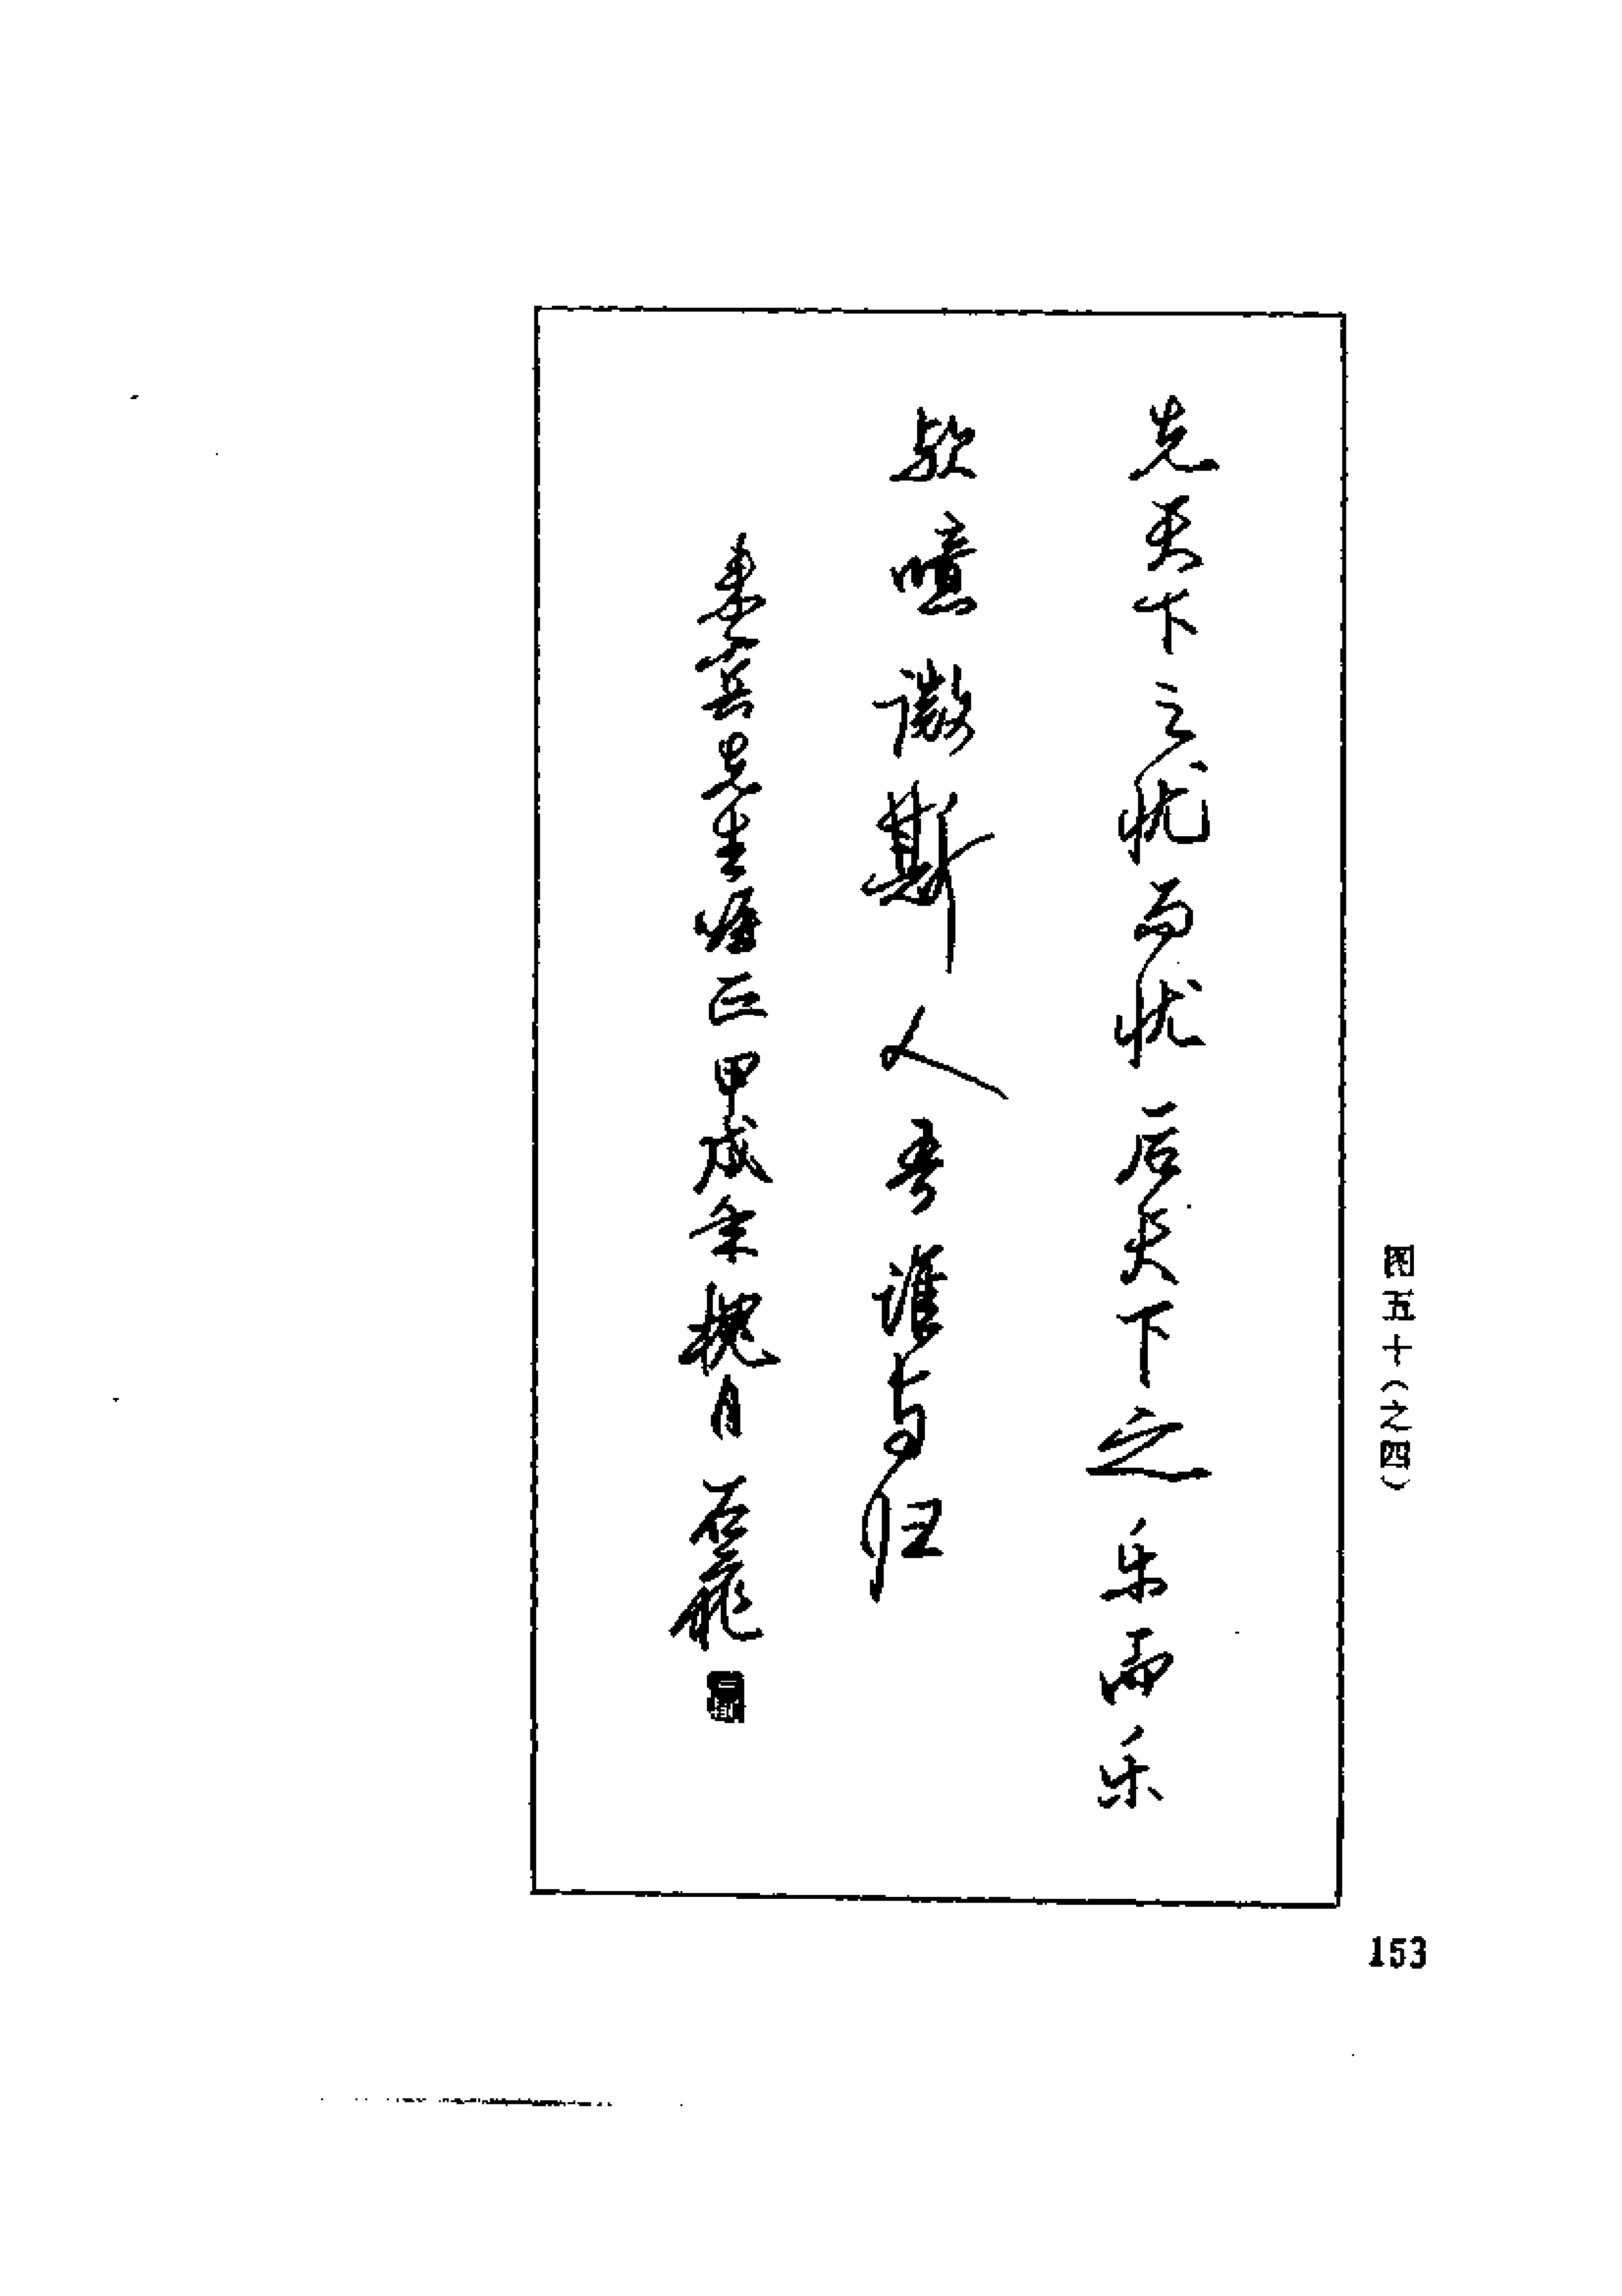 图五十(之四)
先天下之忧而忧后天下之乐而乐
欤噫微斯人吾谁与归
先生正甲戌年槐月石
153